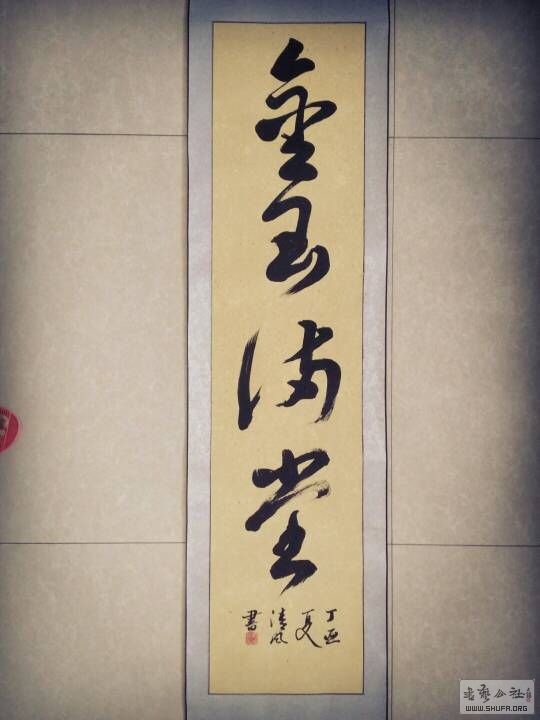 金玉满堂
丁酉
夏
清风
書
WWW.SHUFA.ORG